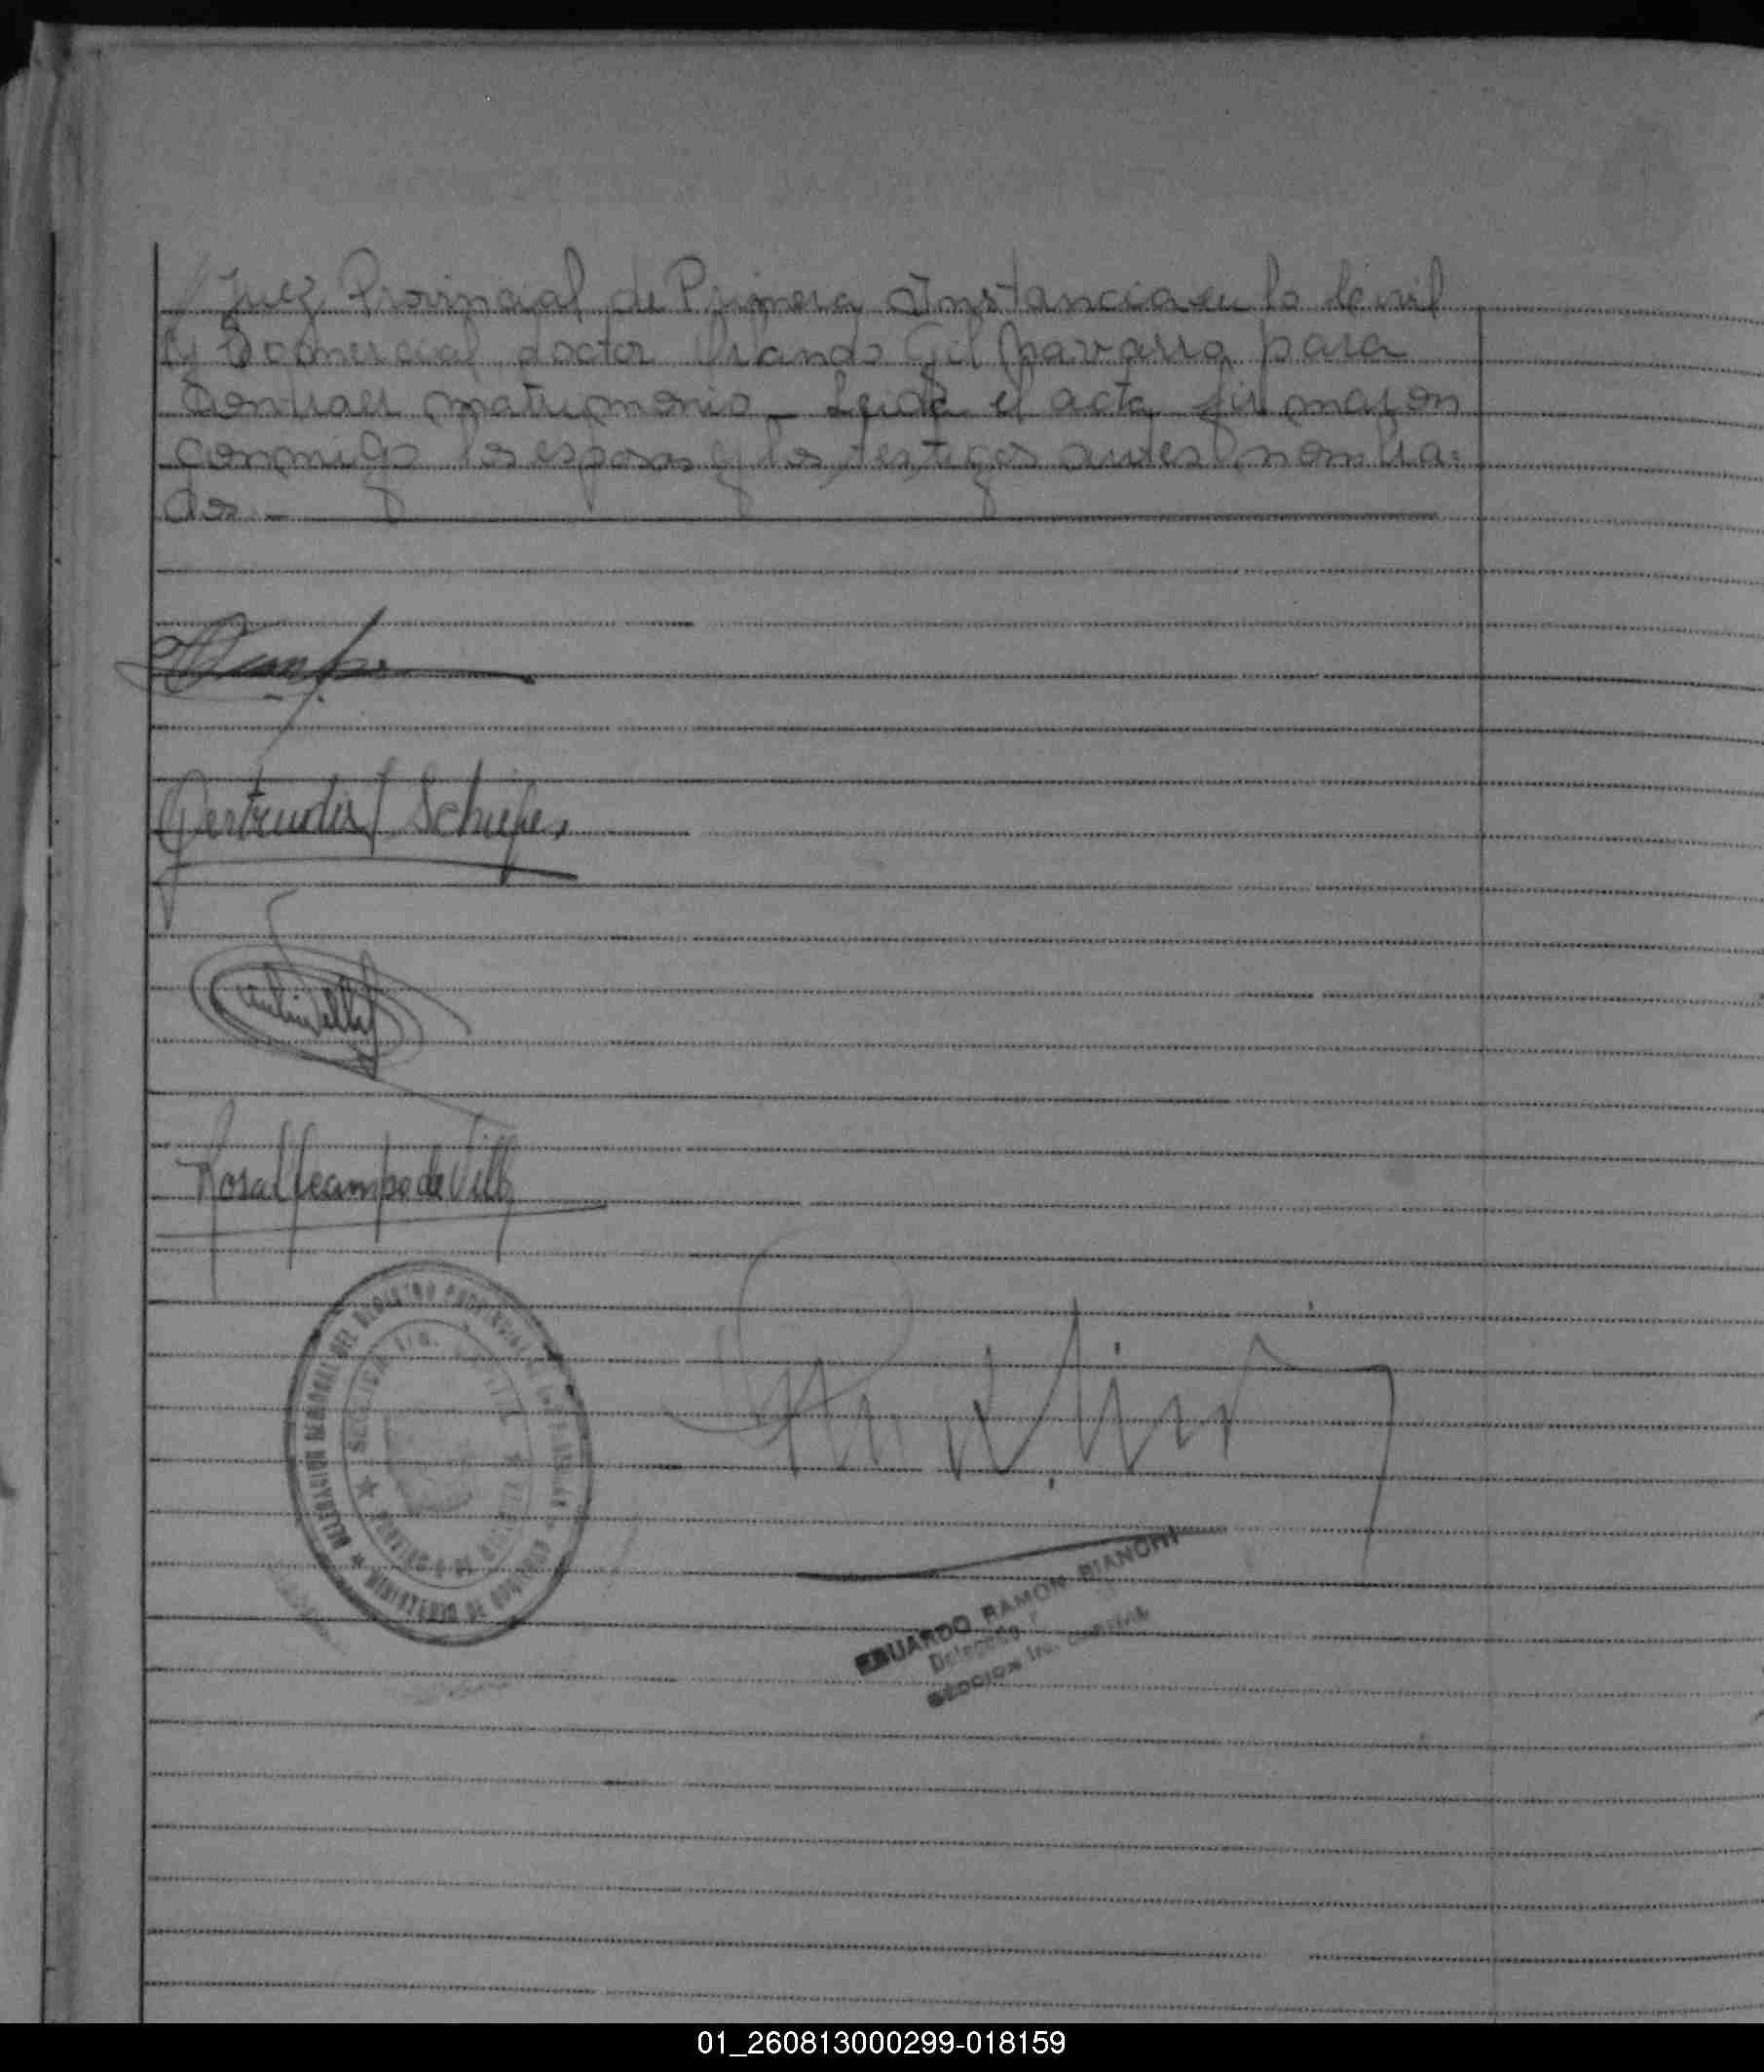 Juez Provincial de Primera Instancia en lo Civil
y Comercial doctor Orlando Gil Navarro para
contraer matrimonio - Leída el acta firmaron
conmigo los esposos y los testigos antes nombra=
dos -
Gertrudis Schiefer
Rosa Ocampo de Villa
DELEGACION REGIONAL DEL REGISTRO PROVINCIAL DE LAS PERSONAS
MINISTERIO DE GOBIERNO
SECCION 1ra. CAPITAL
EDUARDO RAMON BIANCHI
Delegado
SECCION 1ra. CAPITAL
01_260813000299-018159